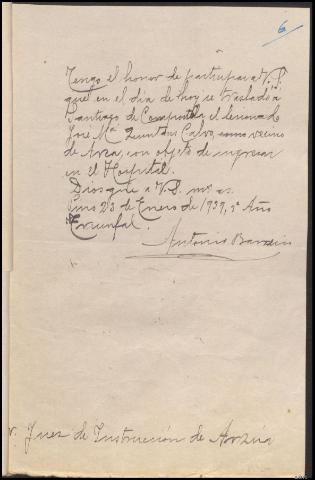 6
Tengo el honor de participar a V.S.
que en el día de hoy se trasladó a
Santiago de Compostela el lesionado
José Mª Quintans Calvo, vecino
de Arzúa, con objeto de ingresar
en el Hospital.
Dios gde a V.S. ms as.
Pino 23 de Enero de 1939, Año
Triunfal.
Antonio
Juez de Instrucción de Arzúa